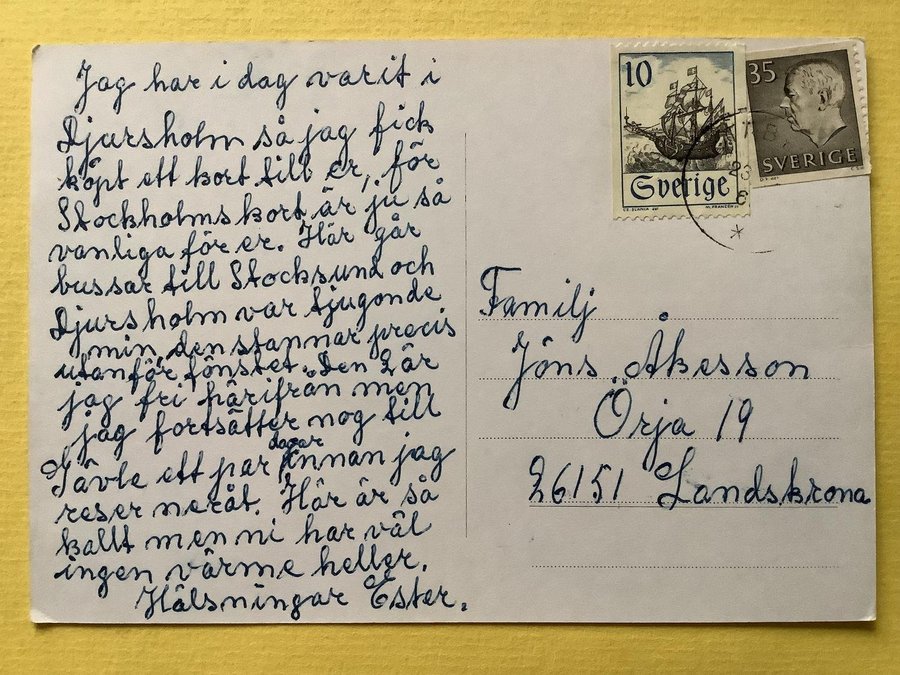 Jag har i dag varit i
Djursholm så jag fick
köpt ett kort till er, för
Stockholmskort är ju så
vanliga för er. Här går
bussar till Stocksund och
Djursholm var tjugonde
min, den stannar precis
utanför fönstet. Den 2 är
jag fri härifrån men
jag fortsätter nog till
Gävle ett par dagar innan jag
reser neråt. Här är så
kallt men ni har väl
ingen värme heller.
Hälsningar Ester.
10
Sverige
35
SVERIGE
Familj
Jöns Åkesson
Örja 19
26151 Landskrona